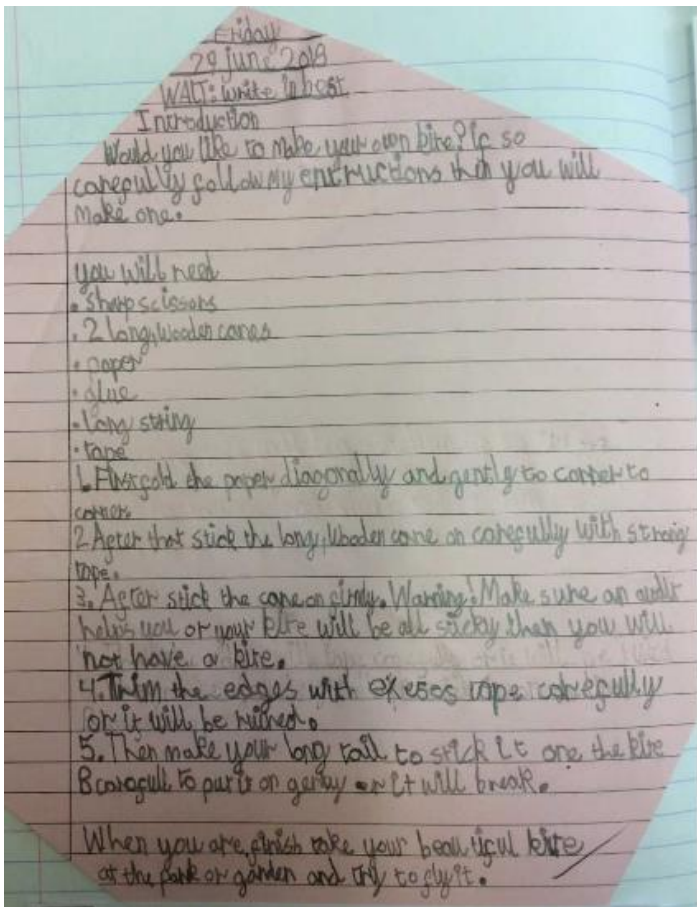 Friday
29 june 2018
WALT: write in best
Introduction
Would you like to make your own kite? if so
carefully follow my entructions then you will
make one.
you will need
• sharp scissors
• 2 long, wooden canes
• paper
• glue
• long string
• tape
1. First fold the paper diagonally and gently to corner to
corners
2 After that stick the long, wooden cane on carefully with strong
tape.
3. After stick the cane on firmly. Warning! Make sure an adult
helps you or your kite will be all sticky then you will
not have a kite.
4. Trim the edges with exeses tape carefully
or it will be ruined.
5. Then make your long tail to stick it one the kite
B carefull to put it on genty or it will break.
When you are finish take your beautiful kite
at the park or garden and try to fly it.